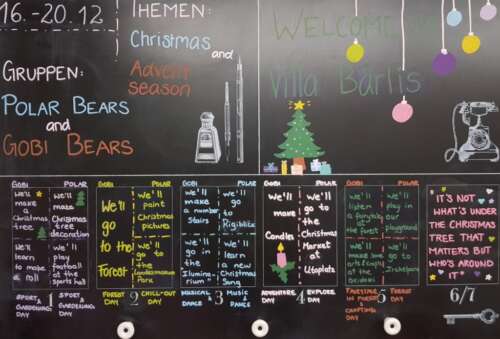 16.-20.12
THEMEN:
Christmas
and
Advent
season
GRUPPEN:
POLAR BEARS
and
GOBI BEARS
WELCOME
Villa Bärlis
GOBI POLAR
we'll
make
a
Christmas
tree
we'll
make
Christmas
tree
decoration
we'll
learn
to make
a roll
we'll
play
football
at the
sports hall
SPORT
GARDENING
DAY
1
SPORT
GARDENING
DAY
GOBI POLAR
we'll
go
to the
Forest
we'll
paint
Christmas
pictures
we'll
go
to the
Landesmuseum
Park
FOREST
DAY
2
CHILL-OUT
DAY
GOBI POLAR
we'll
make
a number
stairs
we'll
go
to
Rigiblick
we'll
go
to the
Illumina-
rium
we'll
learn
a new
Christmas
Song
MUSICAL
DANCE
3
MUSIC
DANCE
GOBI POLAR
we'll
make
Candles
we'll
go to
the
Christmas
Market
at
Utoplatz
ADVENTURE
DAY
4
EXPLORE
DAY
GOBI POLAR
we'll
listen
a fairytale
in
the forest
we'll
play in
our
playground
we'll
go
to
Irchelpark
FAIRYTIME
IN FOREST
&
CRAFTING
DAY
5
FOREST
DAY
IT'S NOT
WHAT'S UNDER
THE CHRISTMAS
TREE THAT
MATTERS BUT
WHO'S AROUND
IT
6/7